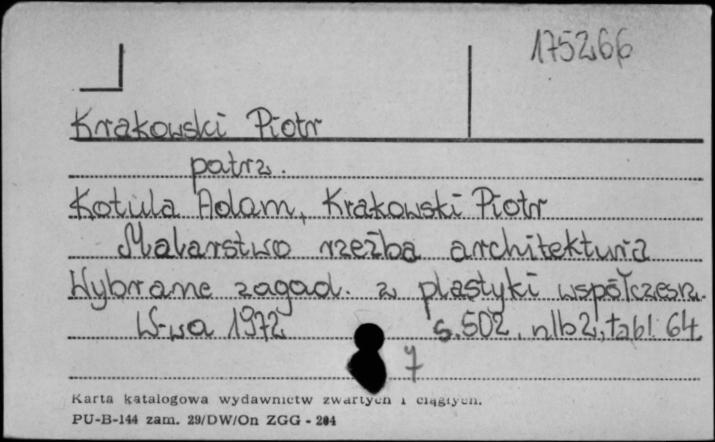 175266
Krakowski Piotr
patrz.
Kotula Adam, Krakowski Piotr
Malarstwo rzeźba architektura
Wybrane zagad. z plastyki współczesn.
W-wa 1972 s. 502, nlb 2, tabl. 64
7
Karta katalogowa wydawnictw zwartych i ciągłych.
PU-B-144 zam. 29/DW/On ZGG - 204